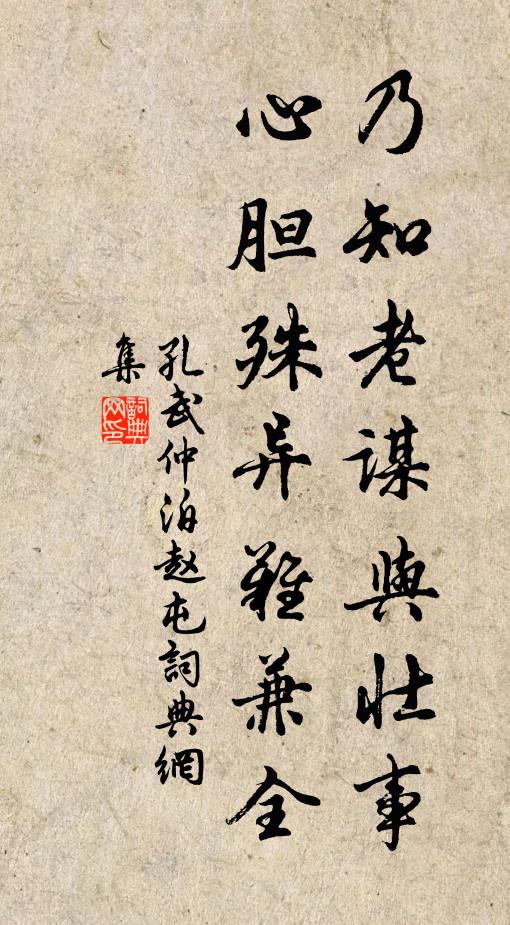 乃知老谋與壮事
心胆殊异難兼全
孔武仲泊赵屯詞典網
集
詞典網印